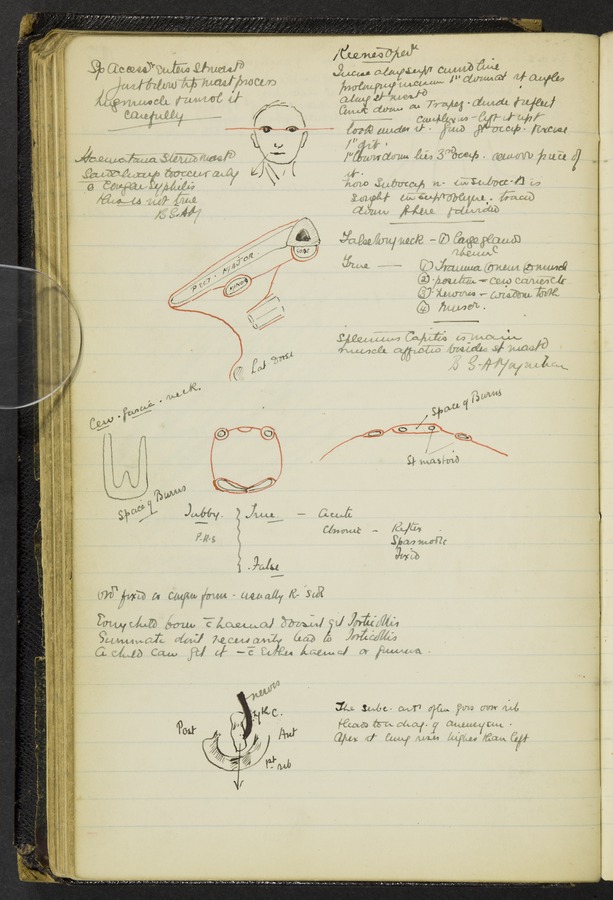 Sp Access enters St mast
just below tip mast process
hug muscle & unrol it
carefully
Haematoma Sterno mast
Same lump to occur only
a Congen Syphilis
this is not true
B.G.A.M
Keenes Oper
Incise along sup curved line
prolonging incision 1" down at rt angles
along St mast
down on Trapez. divide & reflect
complexus - lift it up
look under it. find gt occip. excise
1" of it.
1" lower down lies 3rd occip. remove piece of
it.
Now Suboccip n. in suboc. Δ is
sought in sup oblique. traced
down & there & divided
False Wry neck - ① large gland
rheum
True - ① Trauma to muscl
② position - cerv caries etc
③ nervous - wisdom tooth
④ muscr.
Splenius Capitis is main
muscle affected besides st mast
B G-A Moynihan
PECT. MAJOR
MINOR
SUBC
Lat Dorsi
Cerv. fascia. neck.
Space of Burns
Space of Burns
St mastoid
Tubby. True - Acute
P.H.S
Chronic - Reflex
Spasmodic
Fixed
False
fixed is congen form - usually R. side
Every child born c̄ haemat doesn't get Torticollis
Gummata don't necessarily lead to Torticollis
A child can get it - c̄ either haemat or gumma.
nerves
Post
Ant
1st rib
The subc. art often goes over rib
& leads to a diag. of aneurysm.
Apex rt lung rises higher than left